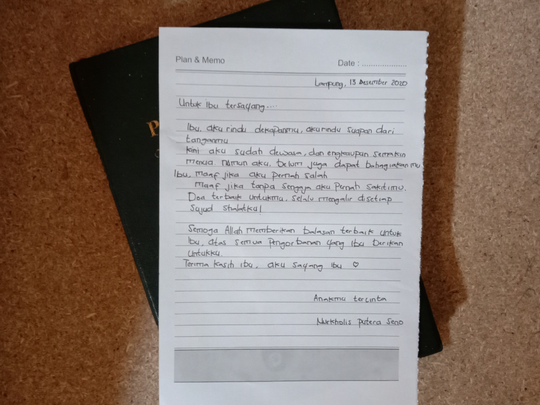 Plan & Memo
Date : ....................
Lampung, 13 Desember 2020
Untuk Ibu tersayang....
Ibu, aku rindu dekapanmu, aku rindu suapan dari
tanganmu
Kini aku sudah dewasa, dan engkaupun semakin
menua namun aku belum juga dapat bahagiakanmu
Ibu, maaf jika aku pernah salah
maaf jika tanpa sengaja aku pernah sakitimu.
Doa terbaik untukmu, selalu mengalir disetiap
Sujud shalatku!
Semoga Allah memberikan balasan terbaik untuk
Ibu, atas semua pengorbanan yang Ibu berikan
Untukku.
Terima kasih ibu, aku sayang ibu ♡
Anakmu tercinta
Nurkholis Putera Seno